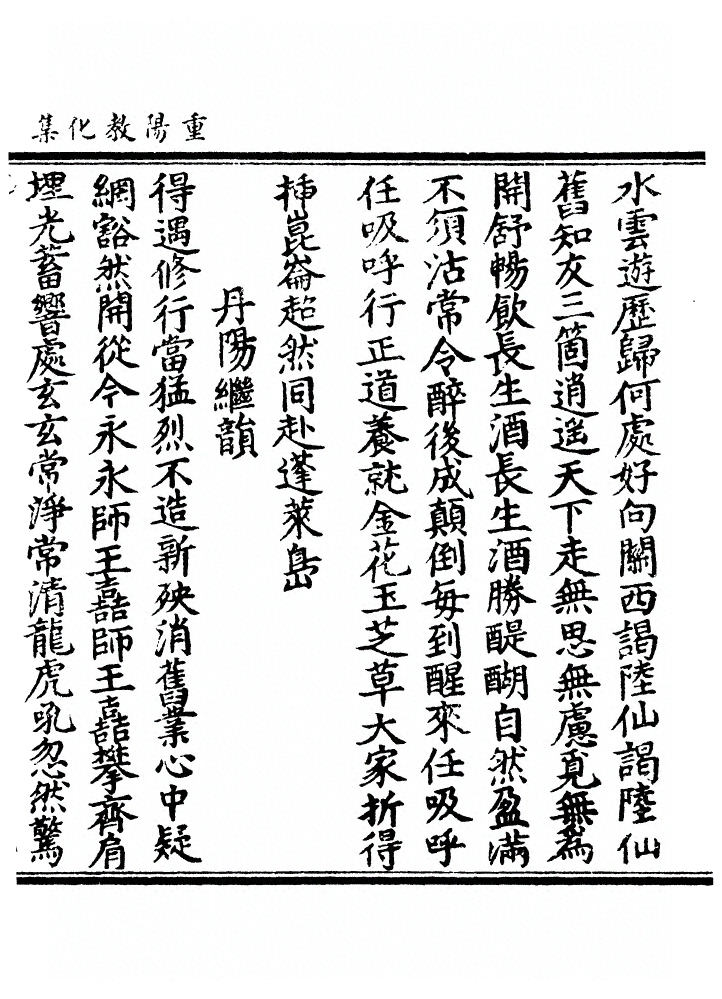 重陽教化集
水雲遊歷歸何處好向關西謁陸仙謁陸仙
舊知友三箇逍遙天下走無思無慮覓無為
開舒暢飲長生酒長生酒勝醍醐自然盈滿
不須沽常令醉後成顛倒每到醒來任吸呼
任吸呼行正道養就金花玉芝草大家折得
挿崑崙超然同赴蓬萊島
丹陽繼韻
得遇修行當猛烈不造新殃消舊業心中疑
網豁然開從今永永師王嚞師王嚞攀齊肩
埋光蓄響處玄玄常淨常清龍虎吼忽然驚